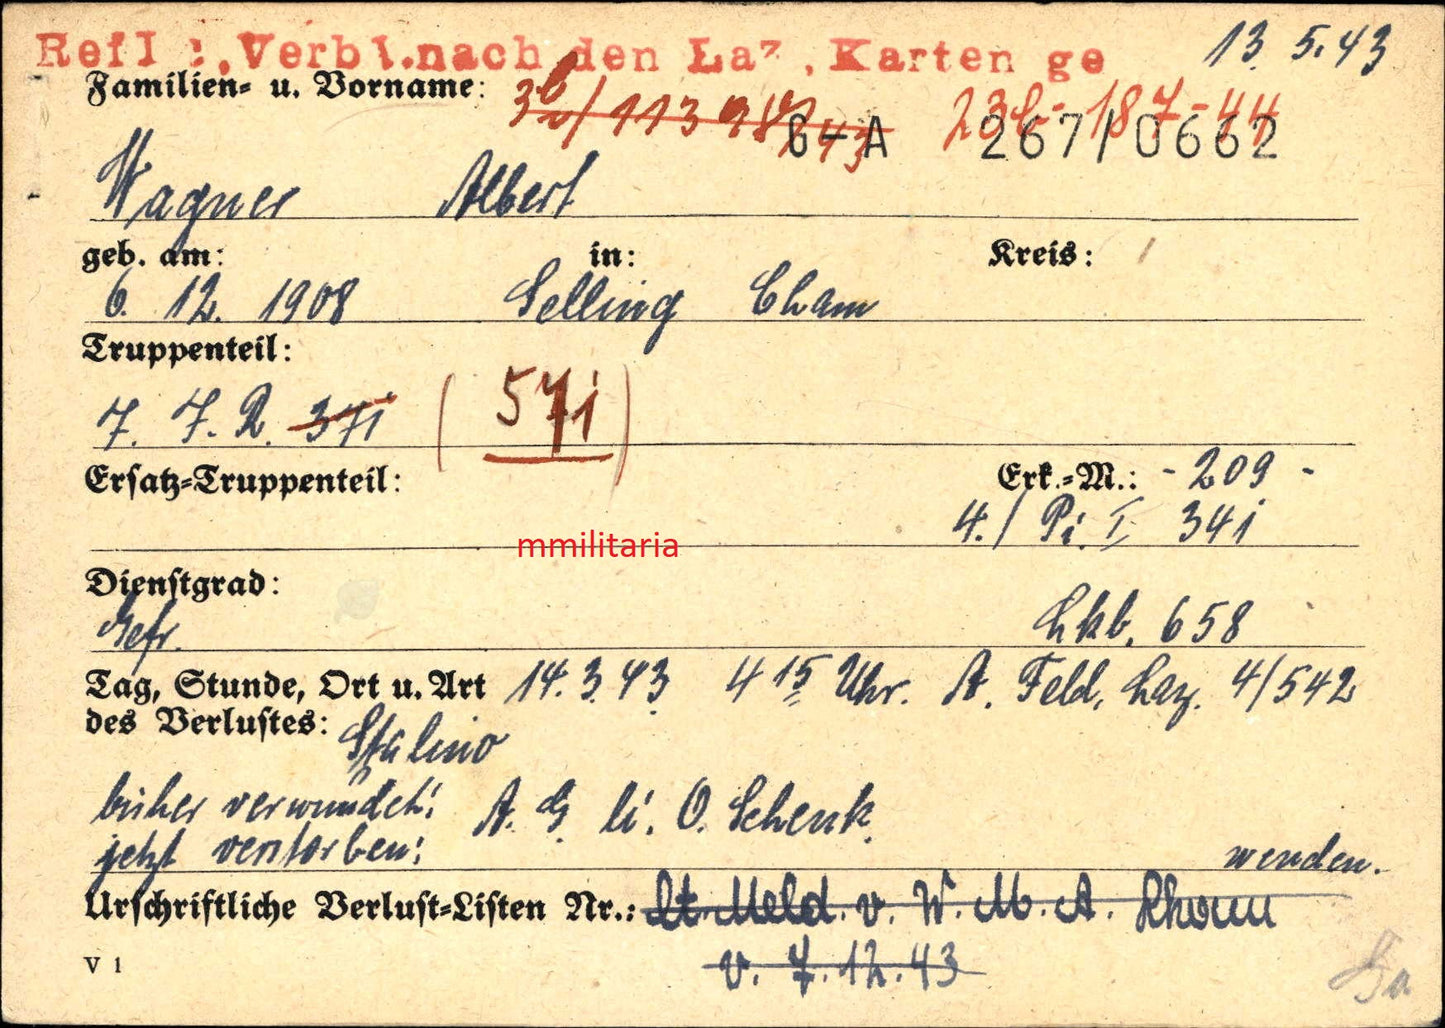 Refl :.Verbl.nach den Laz.Karten ge
13. 5. 43
Familien= u. Vorname:
23b-187-44
G-A 267/0662
Wagner Albert
geb. am: in: Kreis:
6. 12. 1908 Selling Cham
Truppenteil:
7. J. R. 371 (571)
Ersatz=Truppenteil: Erk.=M.: - 209 -
4./ Pi. 341
mmilitaria
Dienstgrad:
Gefr. Lkb. 658
Tag, Stunde, Ort u. Art 14. 3. 43 4 15 Uhr. A. Feld. Laz. 4/542
des Verlustes: Stalino
bisher verwundet: A. G. li. O. Schenk.
jetzt verstorben: wenden.
Urschriftliche Verlust=Listen Nr.: Lt. Meld. v. W. M. A.
v. 7.12.43
V 1